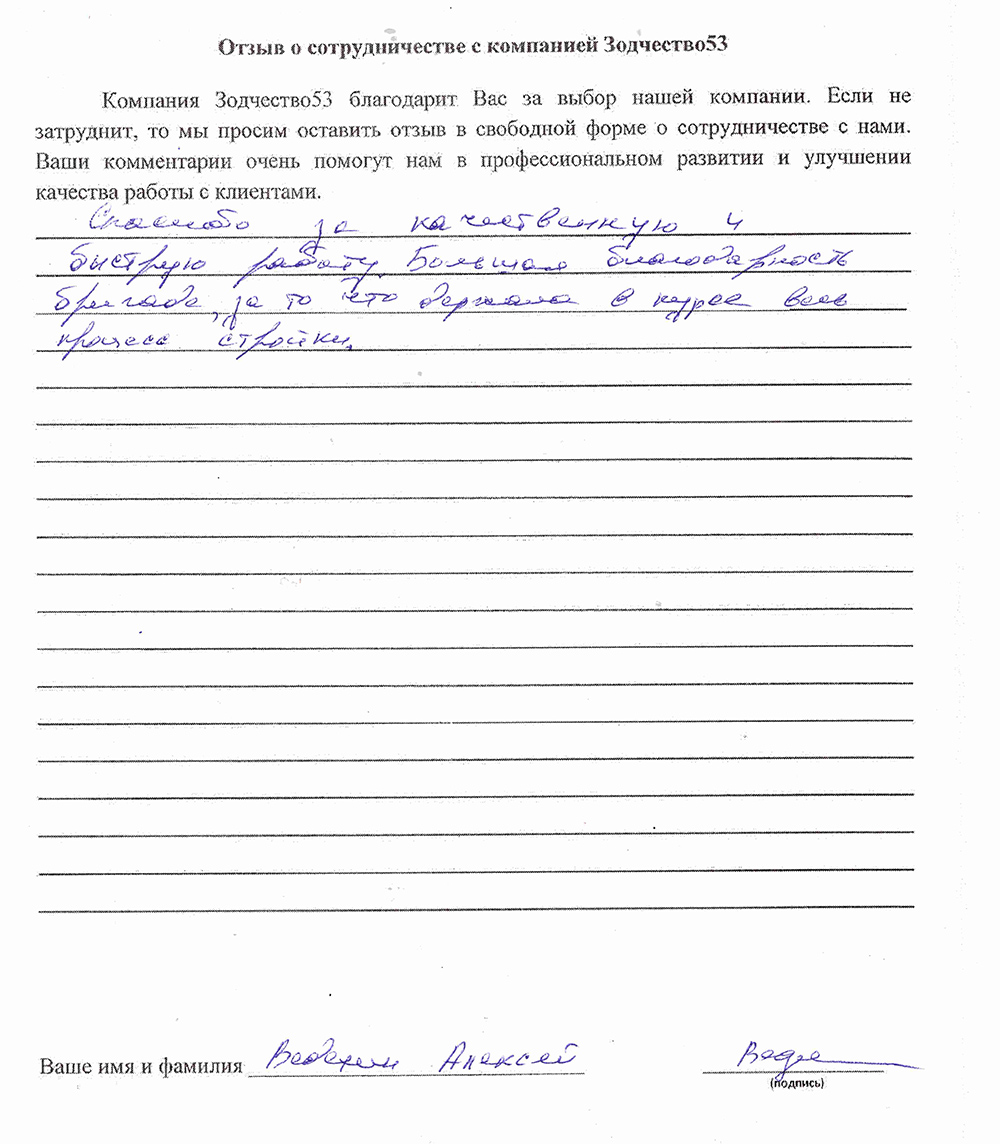 Отзыв о сотрудничестве с компанией Зодчество53
Компания Зодчество53 благодарит Вас за выбор нашей компании. Если не
затруднит, то мы просим оставить отзыв в свободной форме о сотрудничестве с нами.
Ваши комментарии очень помогут нам в профессиональном развитии и улучшении
качества работы с клиентами.
Спасибо за качественную и
быструю работу. Большая благодарность
бригаде, за то что держала в курсе весь
процесс стройки.
Ваше имя и фамилия Алексей
(подпись)